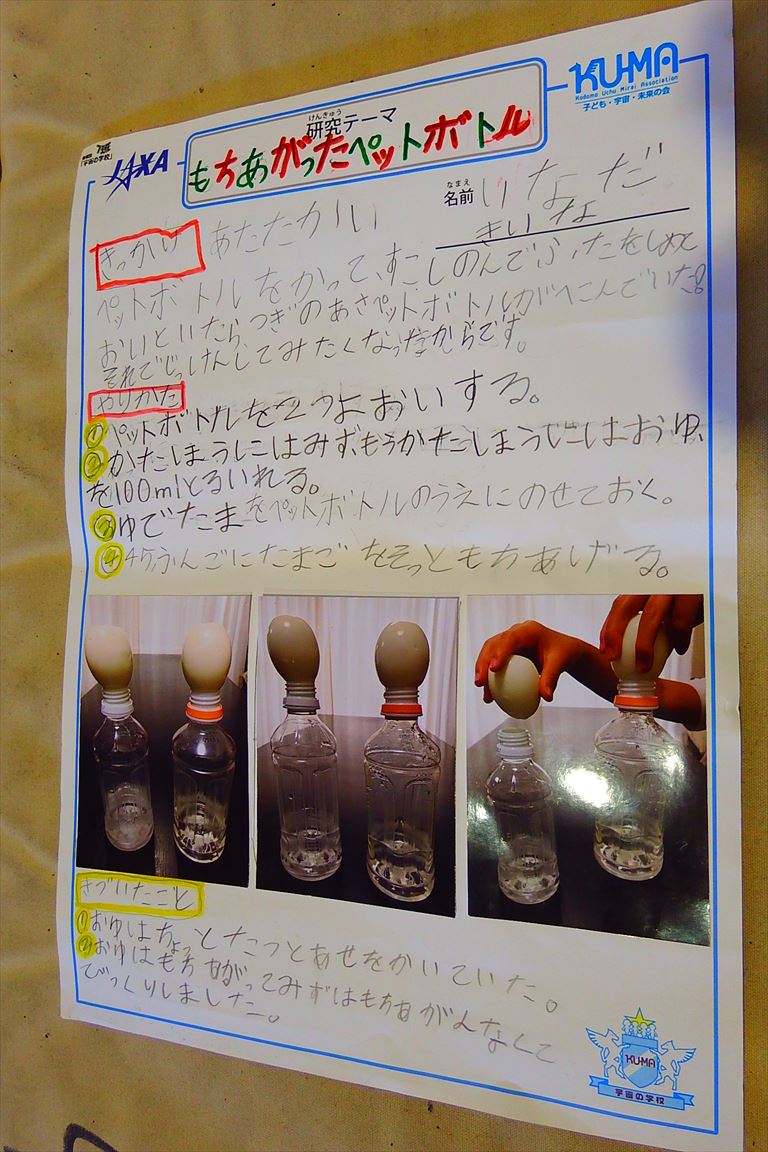 KU-MA
Kodomo Uchu Mirai Association
子ども・宇宙・未来の会
「宇宙の学校」
JAXA
けんきゅう
研究テーマ
もちあがったペットボトル
なまえ
名前 いなだ
きいな
きっかけ あたたかい
ペットボトルをかって、すこしのんでふたをしめて
おいといたら、つぎのあさペットボトルがへこんでいた!
それでじっけんしてみたくなったからです。
やりかた
①ペットボトルを2つよおいする。
②かたほうにはみず、もうかたほうにはおゆ、
を100mlとるいれる。
③ゆでたまをペットボトルのうえにのせておく。
④45ふんごにたまごをそっともちあげる。
きづいたこと
①おゆはちょっとたつとあせをかいていた。
②おゆはもちあがってみずはもちあがんなくて
びっくりしました。
KU-MA
宇宙の学校